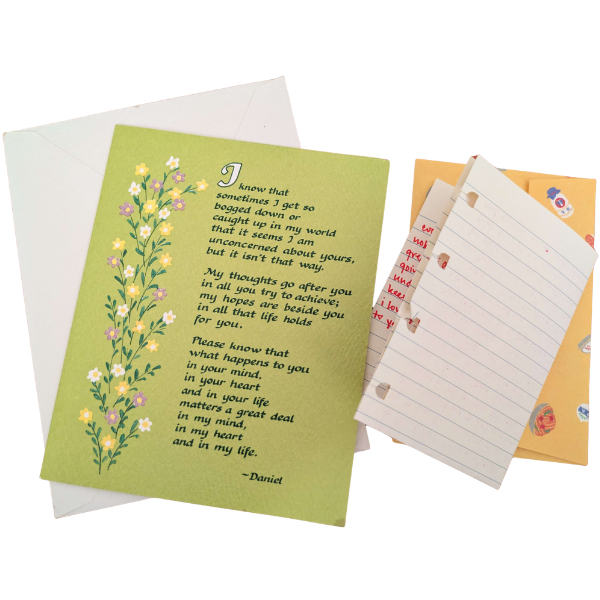 I
know that
sometimes I get so
bogged down or
caught up in my world
that it seems I am
unconcerned about yours,
but it isn't that way.
My thoughts go after you
in all you try to achieve;
my hopes are beside you
in all that life holds
for you.
Please know that
what happens to you
in your mind,
in your heart
and in your life
matters a great deal
in my mind,
in my heart
and in my life.
~Daniel
i lov
to y